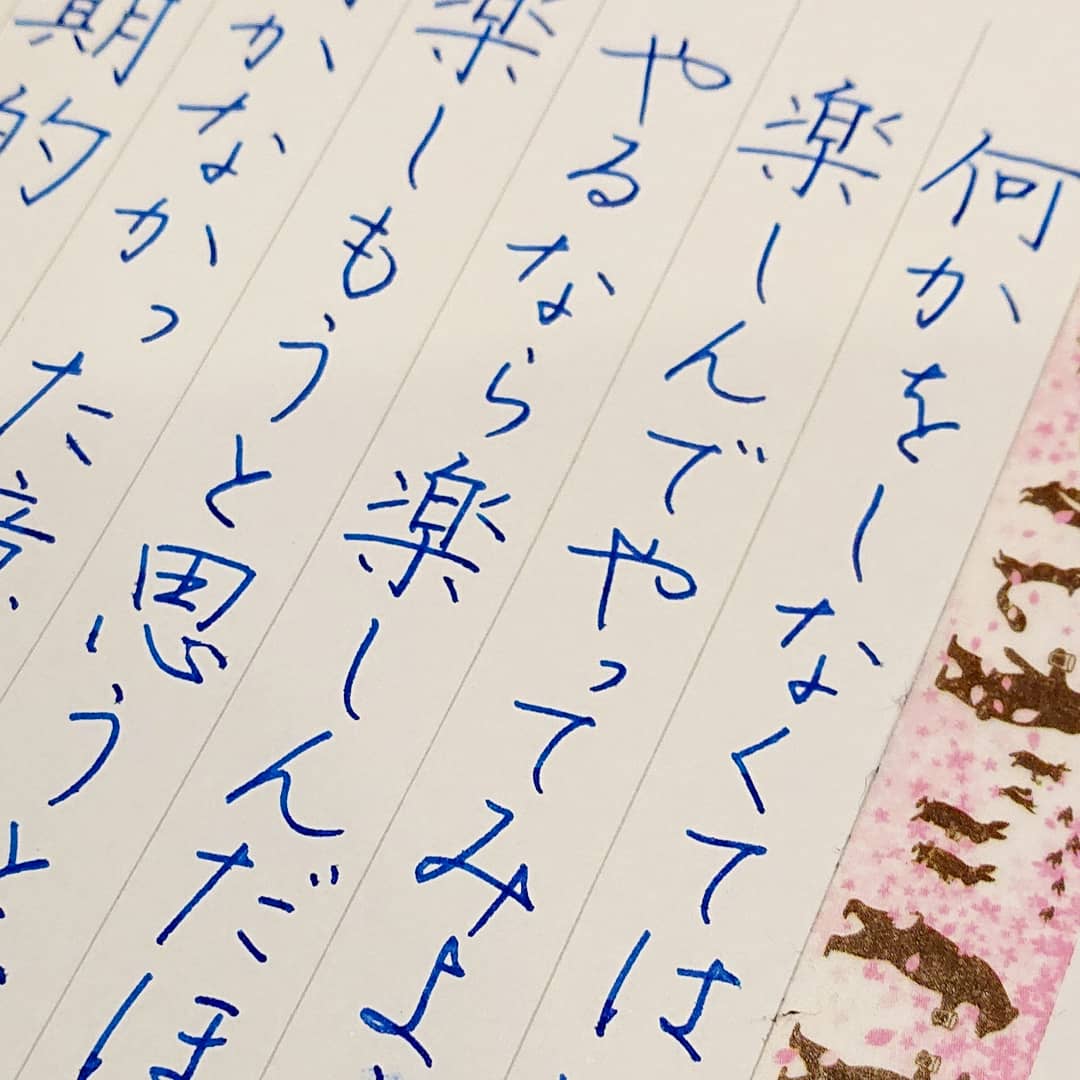 何かをしなくては
楽しんでやってみよ
やるなら楽しんだほ
楽しもうと思うと
かなかった
期的